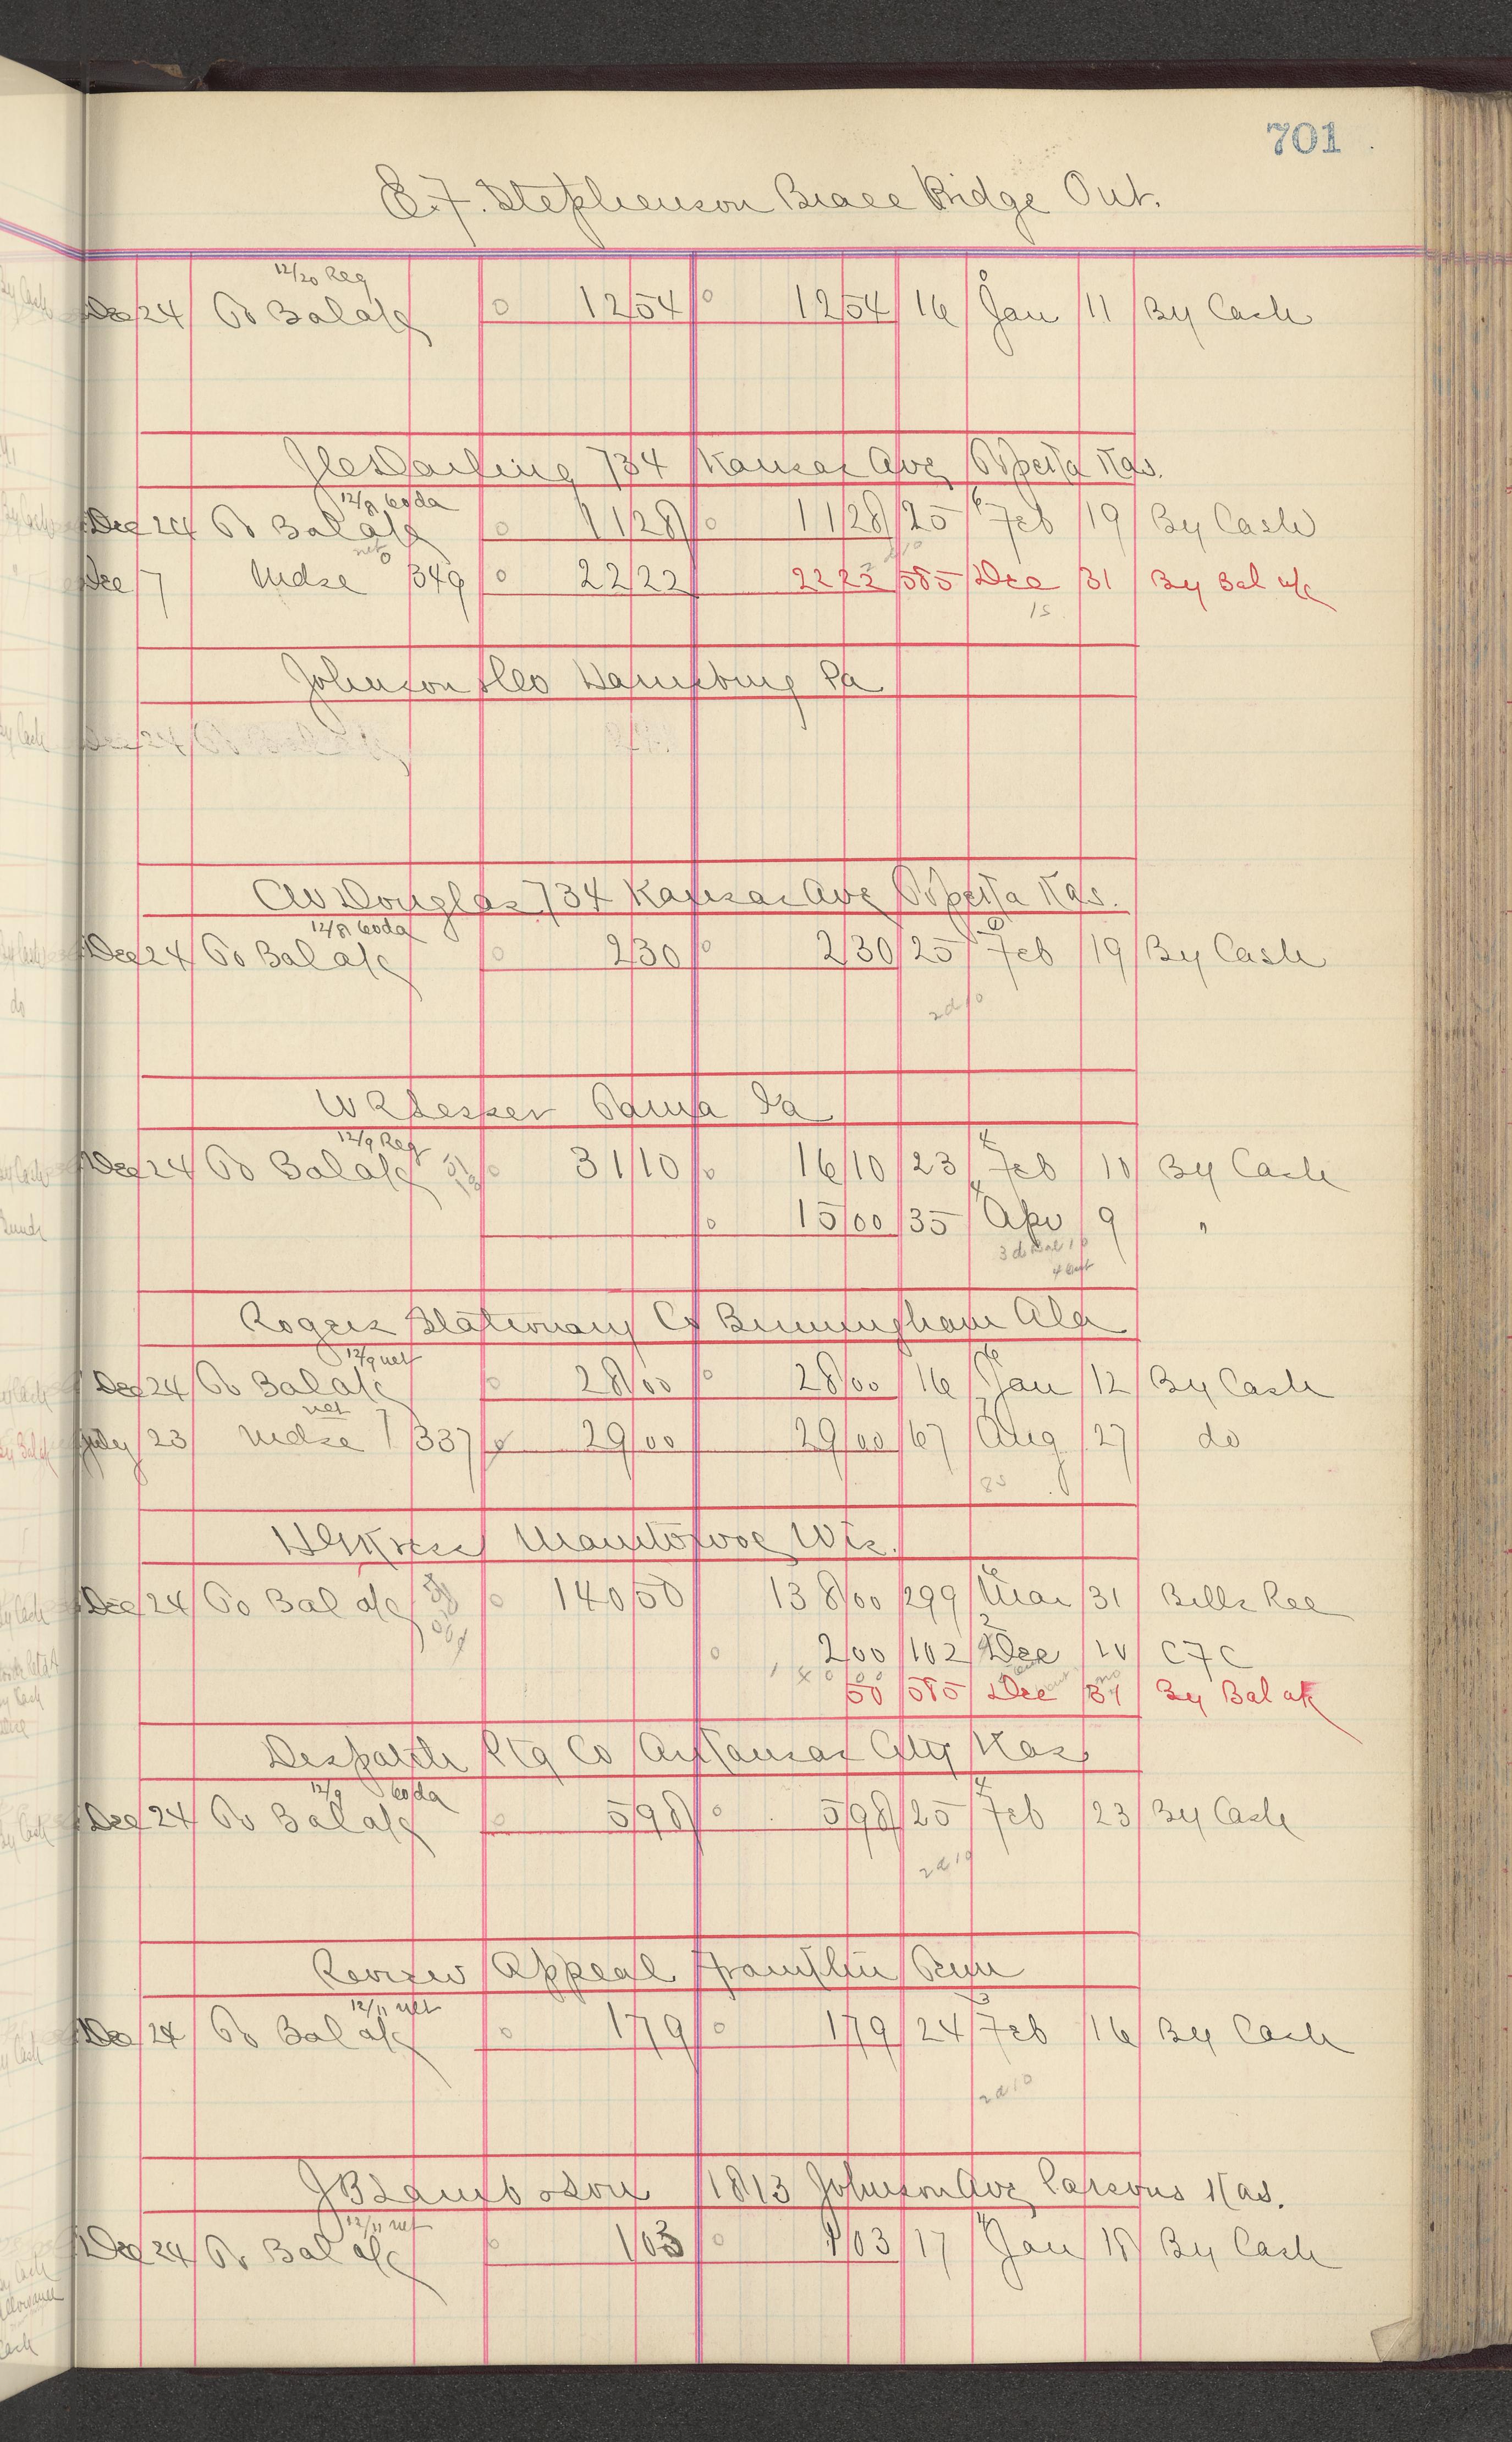 701
E.F. Stephenson Brace Bridge Ont.
12/20 Reg
Dec 24 To Bal a/c 0 12 54 0 12 54 16 Jan 11 By Cash
Darling 734 Kansas Ave Topeka Kas.
12/8 60 da
Dec 24 To Bal a/c 0 11 28 0 11 28 25 Feb 19 By Cash
net
Dec 7 Mdse 349 0 22 22 22 22 585 Dec 31 By Bal a/c
15
Johnson Harrisburg Pa
Dec 24
CW Douglas 734 Kansas Ave Topeka Kas.
12/8 60 da
Dec 24 To Bal a/c 0 2 30 0 2 30 25 Feb 19 By Cash
2d 10
W R Lesser Tama Ia
12/9 Reg
Dec 24 To Bal a/c 0 31 10 0 16 10 23 Feb 10 By Cash
0 15 00 35 Apr 9 "
Rogers Stationary Co Birmingham Ala
12/9 net
Dec 24 To Bal a/c 0 28 00 0 28 00 16 Jan 12 By Cash
net
July 23 Mdse 337 29 00 29 00 67 Aug 27 do
85
Manitowoc Wis.
Dec 24 To Bal a/c 0 140 50 138 00 299 Mar 31 Bills Rec
0 2 00 102 Dec 20 C F C
50 585 Dec 31 By Bal a/c
Despatch Ptg Co Arkansas City Kas
12/9 60 da
Dec 24 To Bal a/c 0 5 98 0 5 98 25 Feb 23 By Cash
2d 10
Review Appeal Franklin Tenn
12/11 net
Dec 24 To Bal a/c 0 1 79 0 1 79 24 Feb 16 By Cash
2d 10
J B Lamb & Son 1813 Johnson Ave Parsons Kas.
12/11 net
Dec 24 To Bal a/c 0 1 03 0 1 03 17 Jan 18 By Cash